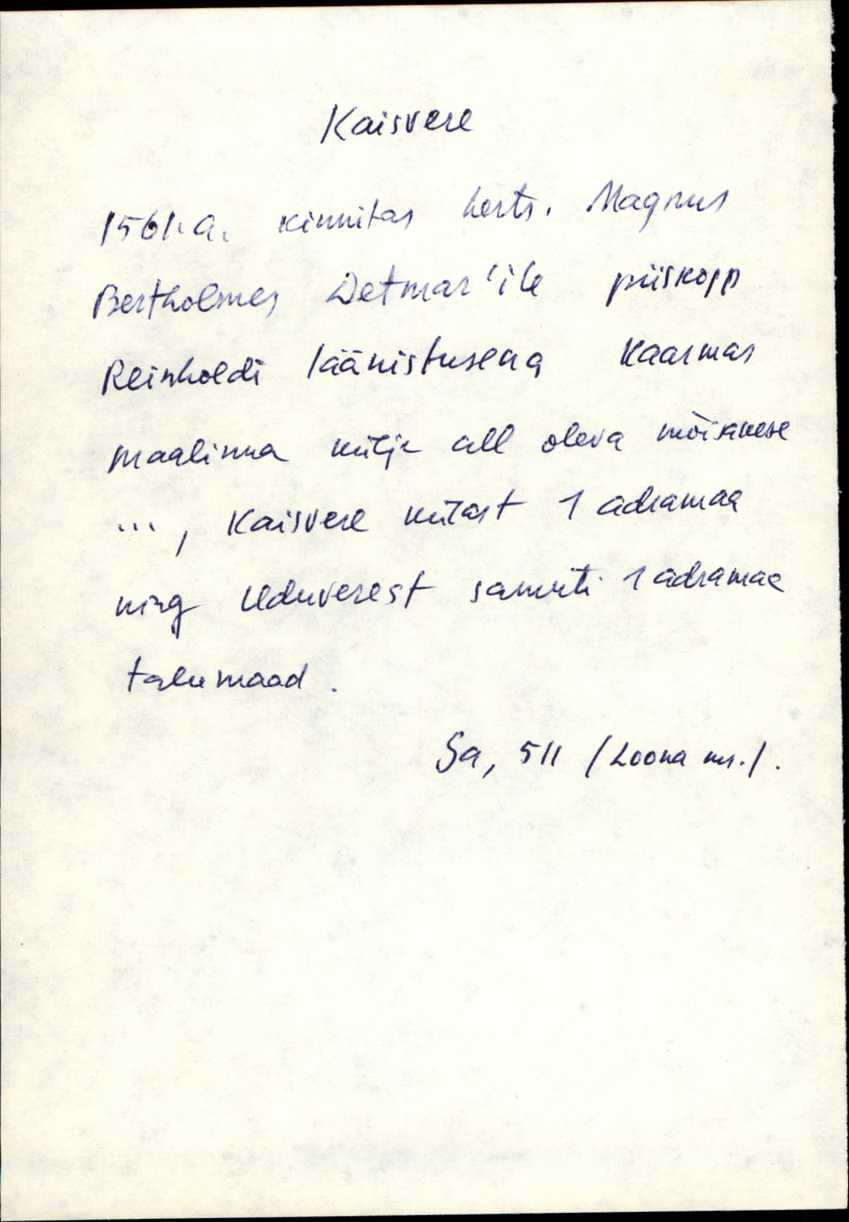 Kaisvere
1561. a. kinnitas herts. Magnus
Bertholmes Detmar'ile piiskopp
Reinholdi läänistusena Kaarmas
maalinna külje all oleva mõisakese
..., Kaisvere külast 1 adramaa
ning Uduverest samuti 1 adramaa
talumaad.
Sa, 511 (Loona ms.).